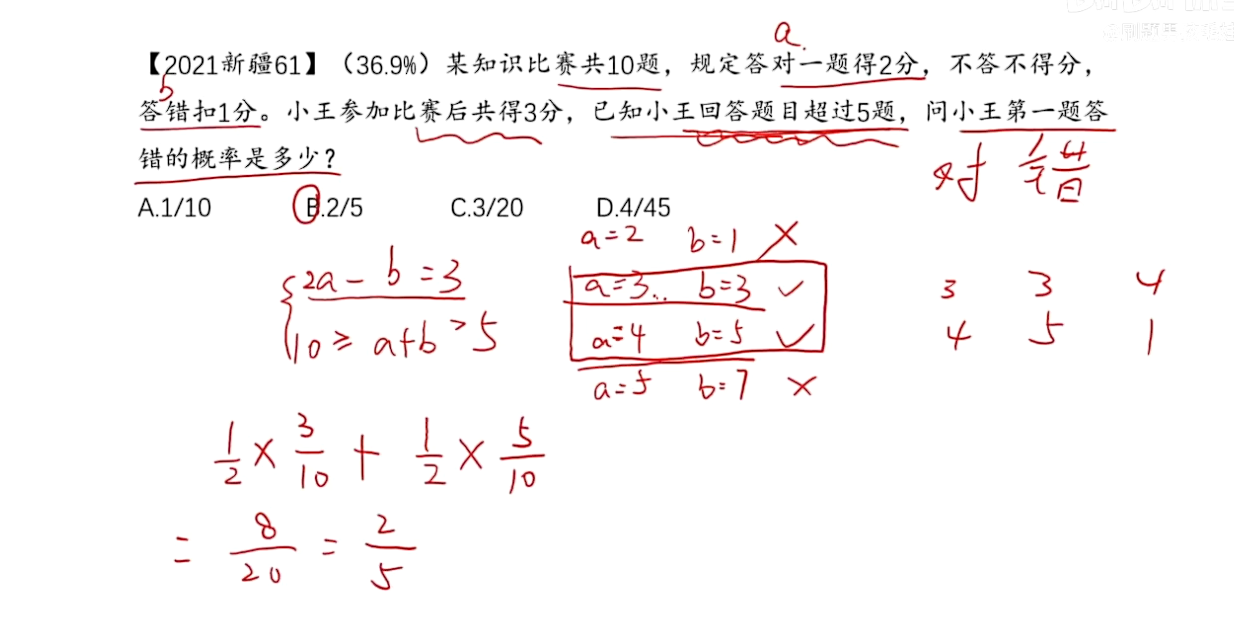 a.
【2021新疆61】（36.9%）某知识比赛共10题，规定答对一题得2分，不答不得分，
b
答错扣1分。小王参加比赛后共得3分，已知小王回答题目超过5题，问小王第一题答
错的概率是多少？
对 错
A.1/10 B.2/5 C.3/20 D.4/45
a=2 b=1 ×
2a-b=3 a=3.. b=3 ✓ 3 3 4
10≥a+b>5 a=4 b=5 ✓ 4 5 1
a=5 b=7 ×
1/2×3/10+1/2×5/10
=8/20=2/5